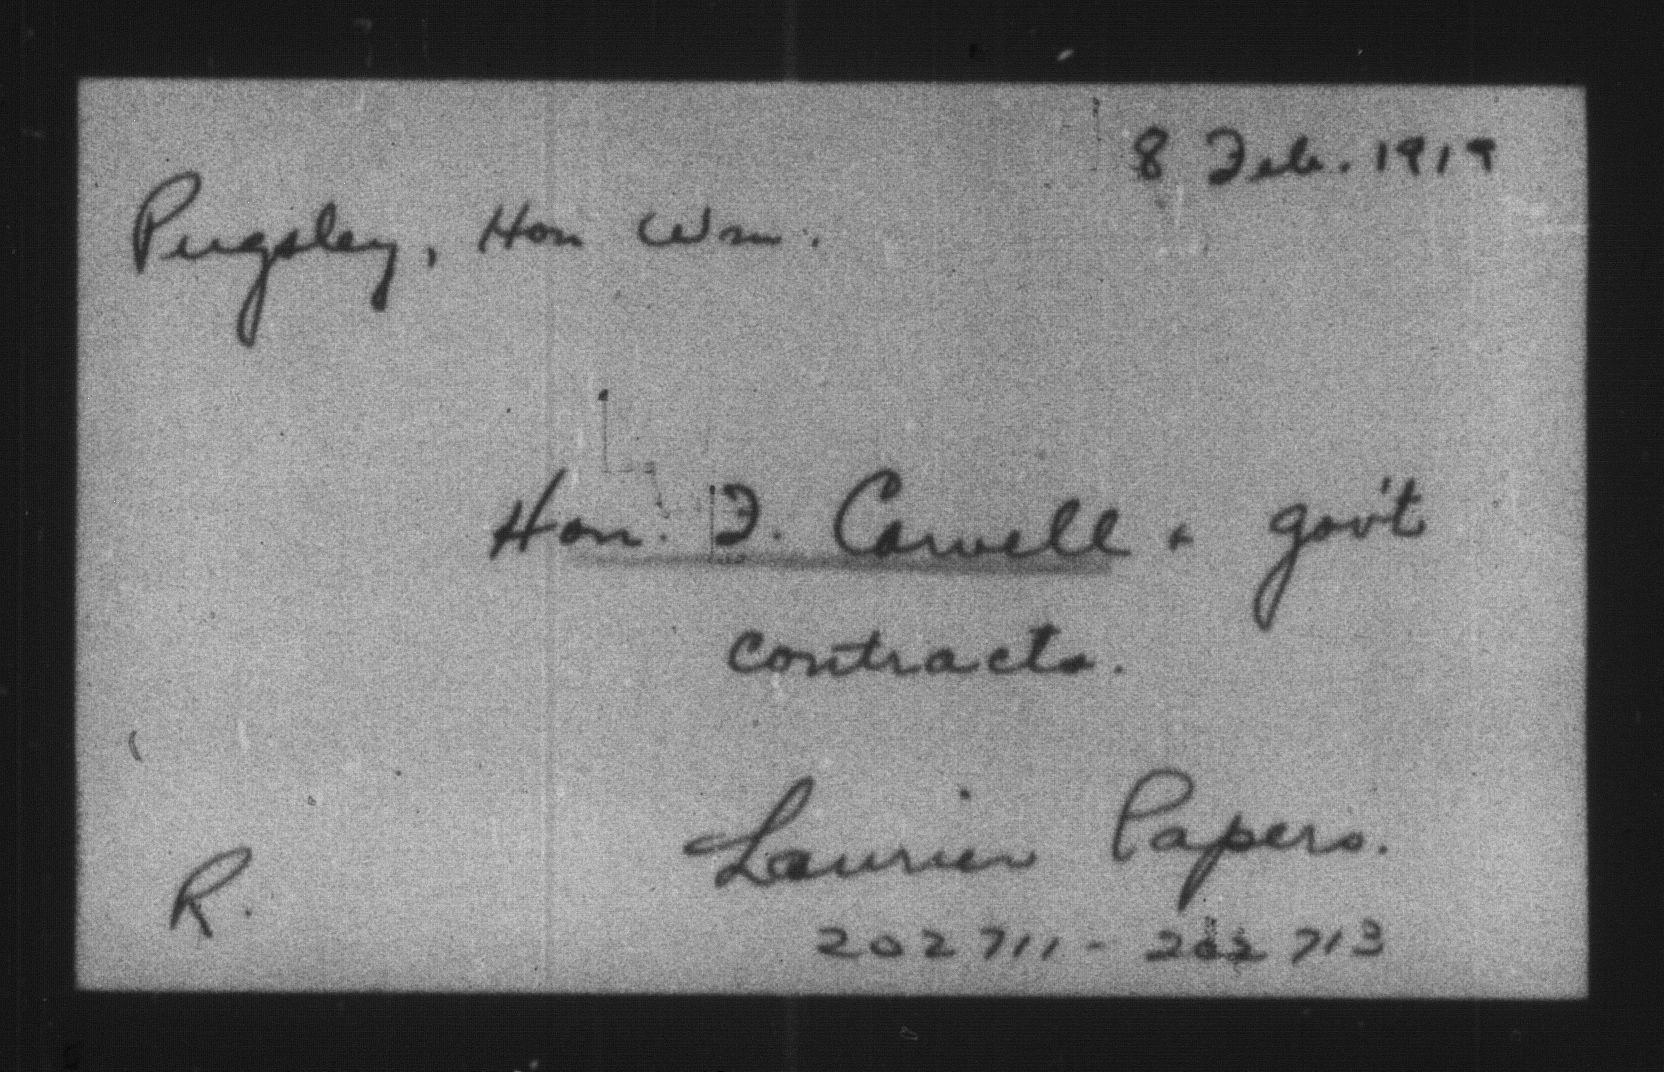 8 Feb. 1919
Pugsley, Hon Wm.
Hon. F. Carvell & gov't
contracts.
Laurier Papers.
R.
202711 - 202713